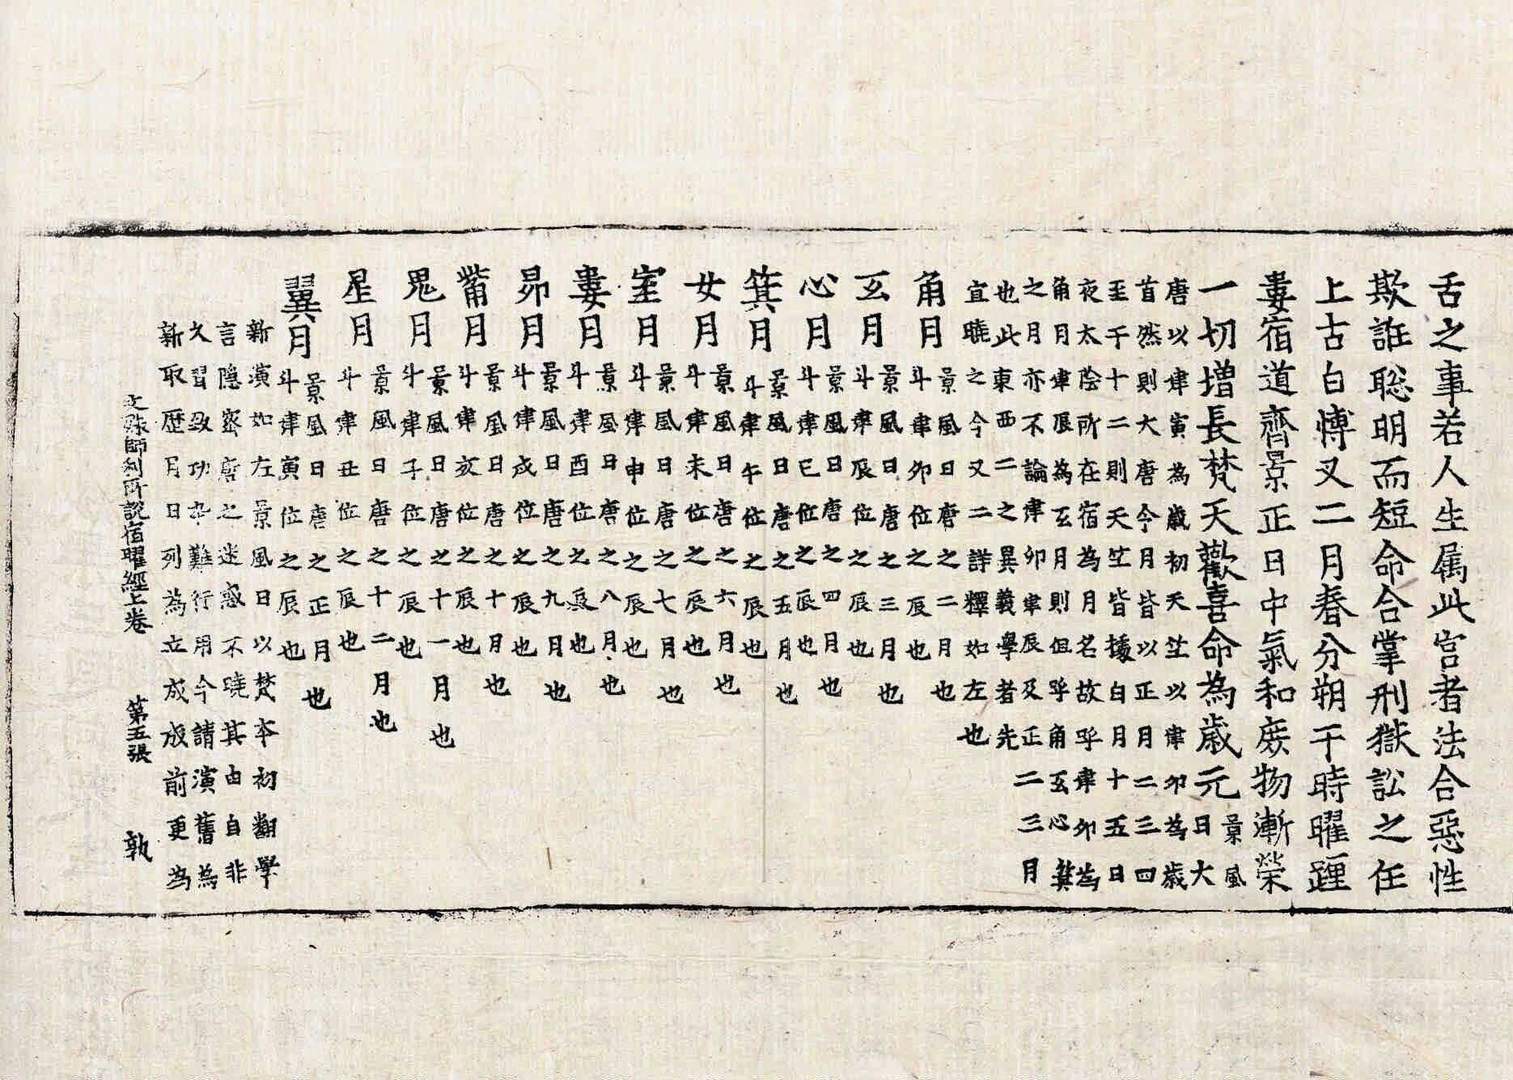 舌之事若人生属此宮者法合惡性
欺誑聡明而短命合掌刑獄訟之任
上古白愽叉二月春分朔干時曜躔
婁宿道齊景正日中氣和庻物漸榮
一切增長梵天歡喜命為歳元景風
日大
唐以建寅為歲初天竺以建卯為歲
首然則大唐今月皆以正月二三四
至于十二則天竺皆據白月十五日
夜太陰所在宿為月名故呼建卯為
角月建辰為玄月則但呼角玄心箕
之月亦不論建卯建辰及正二三月
也此東西二之異義學者先
宜曉之今又二詳釋如左也
角月景風日唐之二月也
斗建卯位之辰也
玄月景風日唐之三月也
斗建辰位之辰也
心月景風日唐之四月也
斗建巳位之辰也
箕月景風日唐之五月也
斗建午位之辰也
女月景風日唐之六月也
斗建未位之辰也
室月景風日唐之七月也
斗建申位之辰也
婁月景風日唐之八月也
斗建酉位之辰也
昴月景風日唐之九月也
斗建戌位之辰也
觜月景風日唐之十月也
斗建亥位之辰也
鬼月景風日唐之十一月也
斗建子位之辰也
星月景風日唐之十二月也
斗建丑位之辰也
翼月景風日唐之正月也
斗建寅位之辰也
新演如左景風日以梵本初翻學
言隱密唐之迷惑不曉其由自非
久習致功卒難行用今請演舊為
新取歷月日列為立成成前更為
文殊師利所說宿曜經上卷 第五張 敦